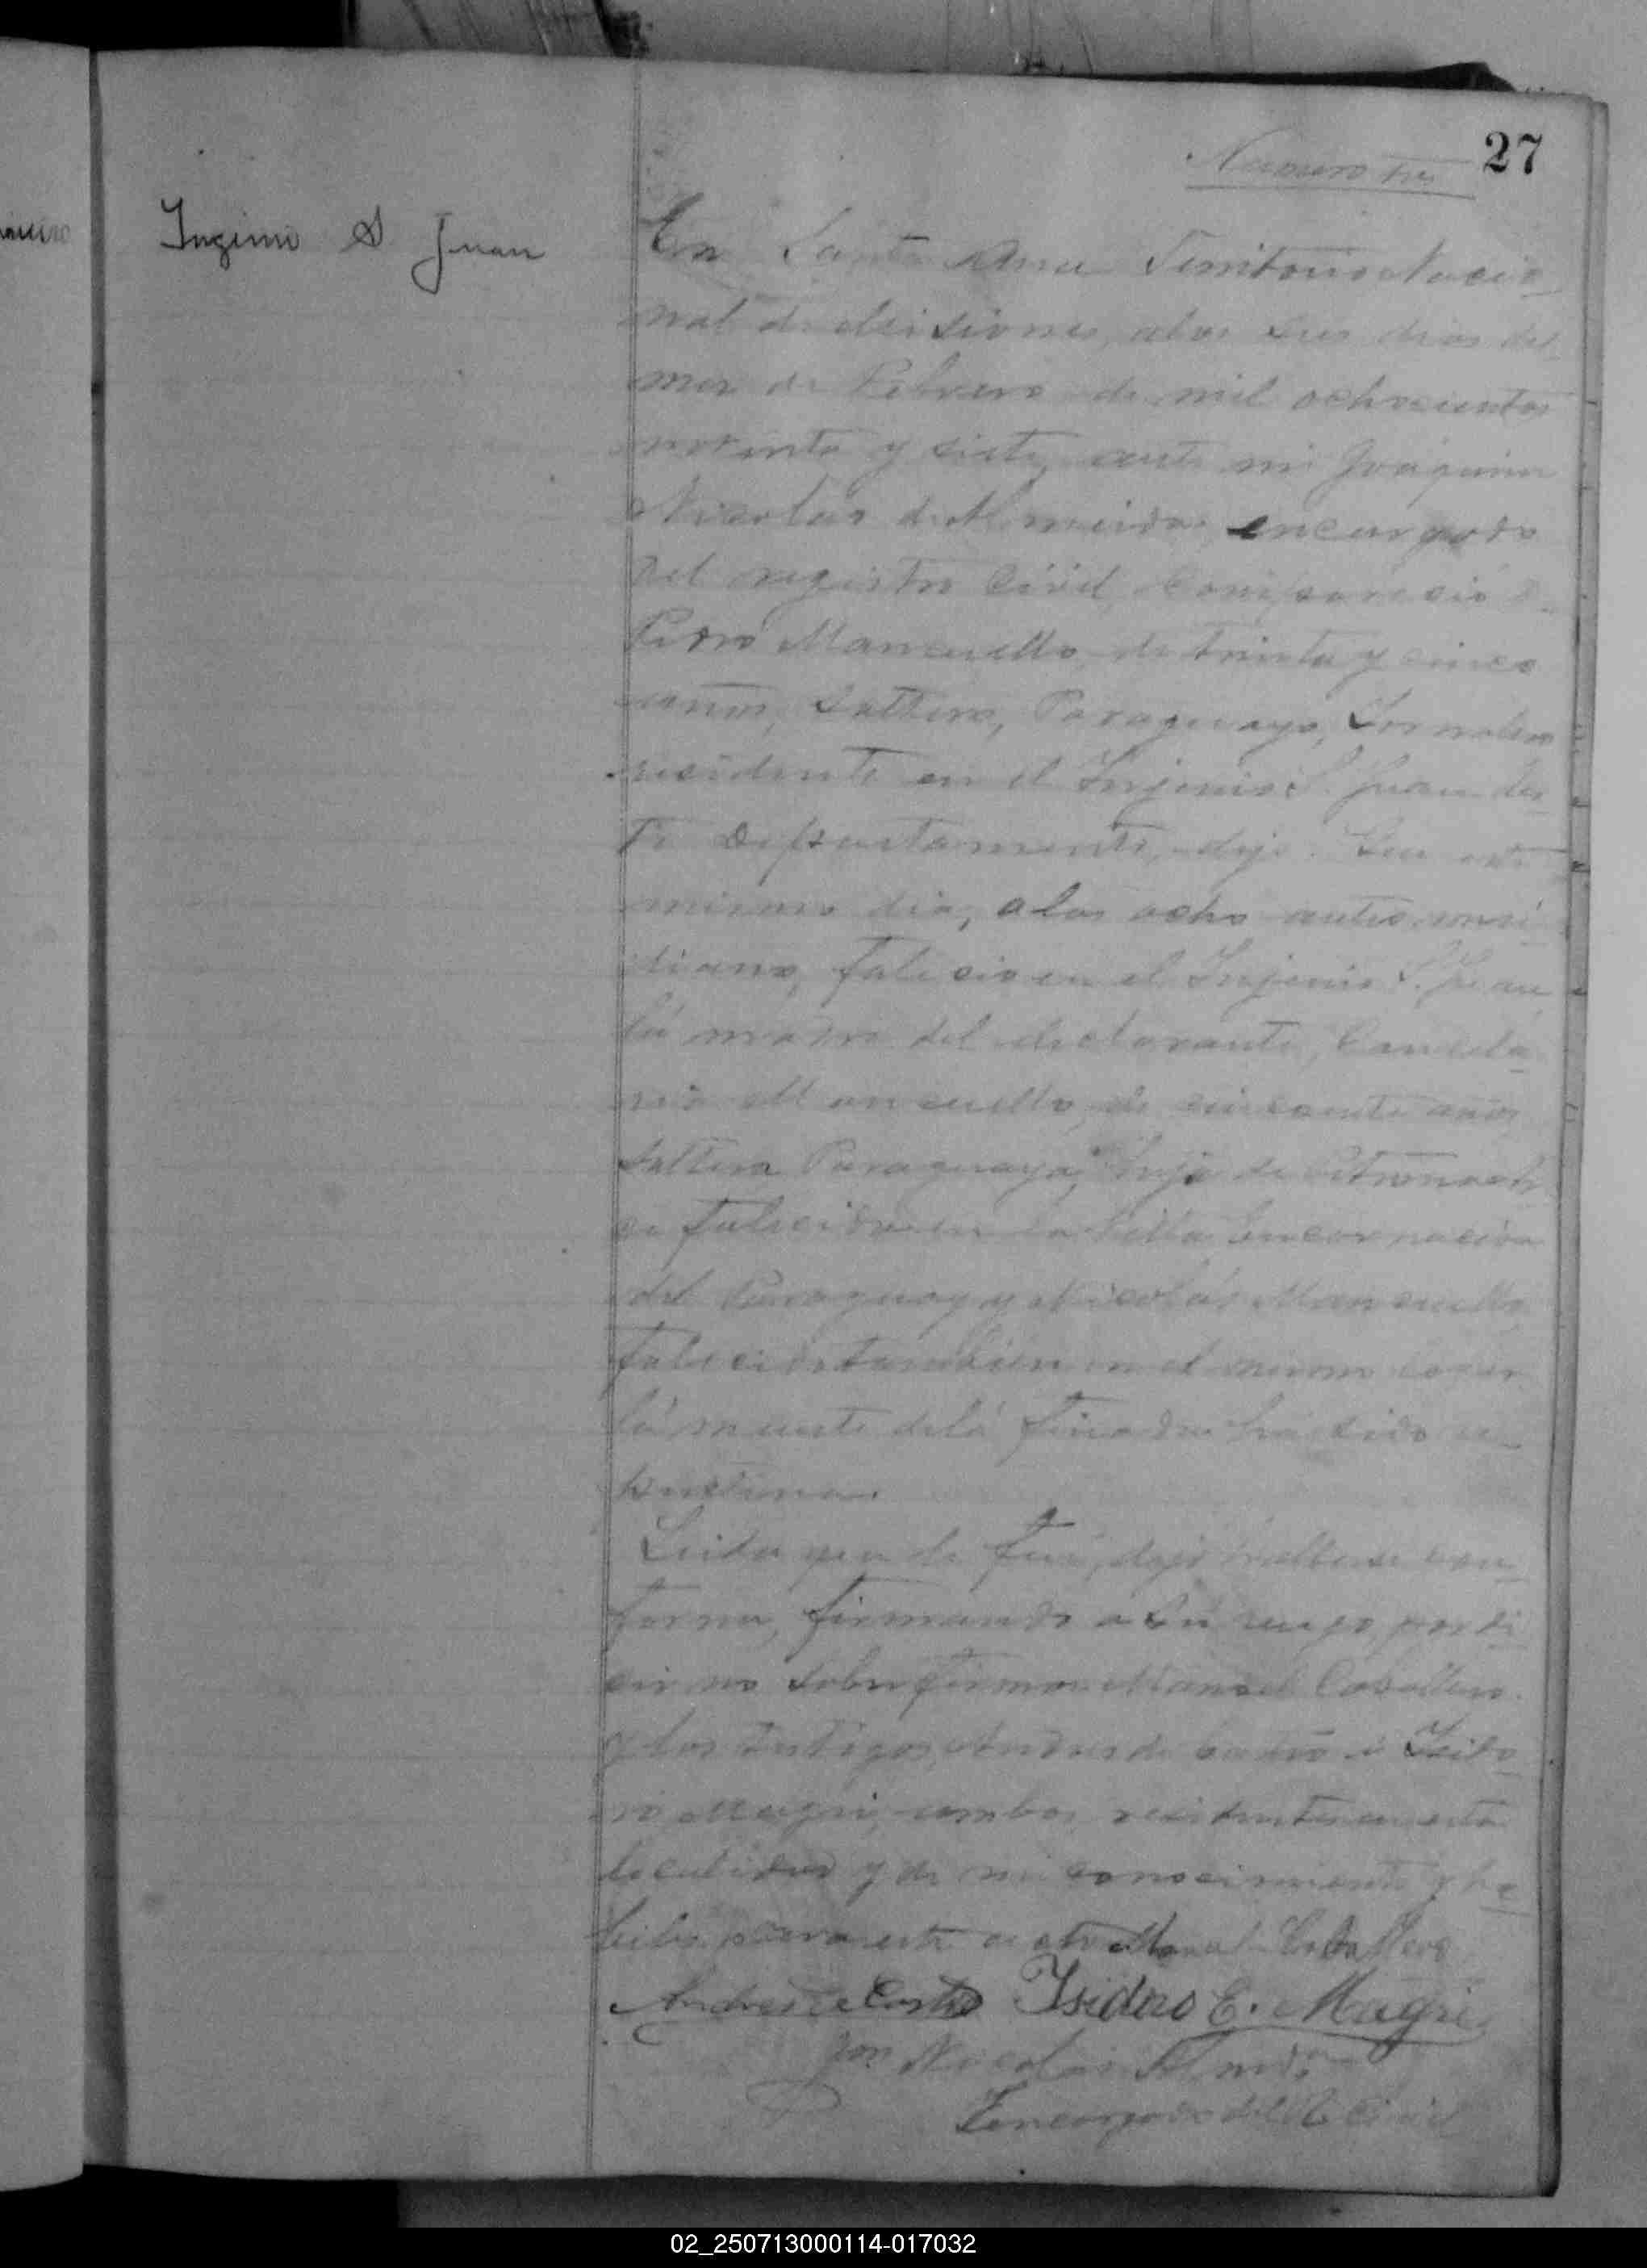 27
Numero tres
Ingenio S Juan
En Santa Ana Territorio Nacio-
nal de Misiones, a los tres dias del
mes de Febrero de mil ochocientos
noventa y siete, ante mi Joaquin
Nicolas de Almeida, encargado
del registro Civil, Comparecio D.
Pedro Mancuello, de trinta y cinco
años, Soltero, Paraguayo, Jornalero
residente en el Injenio S. Juan des-
te Departamento, dijo: Que este
mismo dia, a las ocho ante meri-
diano, falecio en el Injenio S. Juan
lá madre del declarante, Candela-
ria Mancuello, de cincuenta años
Soltera Paraguaya, hija de
falecida en la Villa Encarnacion
del Paraguay y Nicolás Mancuello,
falecido tambien en el mismo lugar
lá muerte delá finada ha sido re-
pentina.
Leida que le fué, dijo hallarse con-
forme, firmando a su ruego, por de
cir no saber firmar Manuel Caballero
y los testigos, Andres de Castro é Isido-
ro Magri, ambos residentes en esta
localidad y de mi conocimiento y ha-
biles para este acto Manuel Caballero
Andres de Castro Isidro E. Magri
Jqn Nicolas Almda
Encargado del R. Civil
02_250713000114-017032